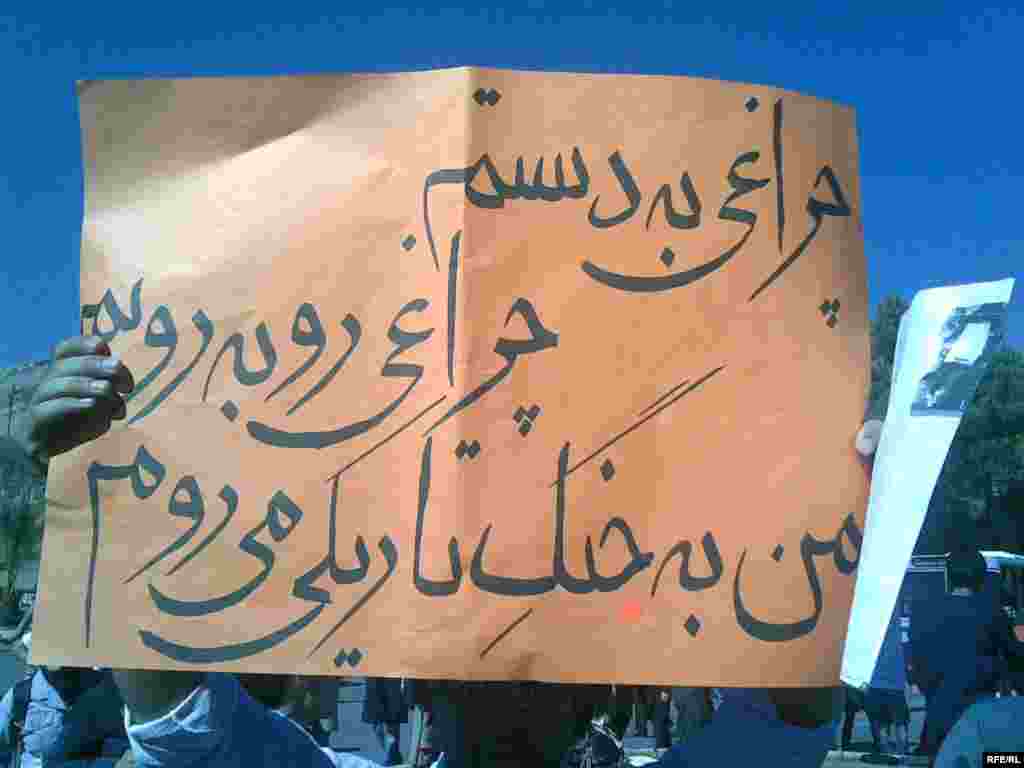 چراغی به دستم
چراغی رو به رویم
من به جنگِ تاریکی می روم
RFE/RL